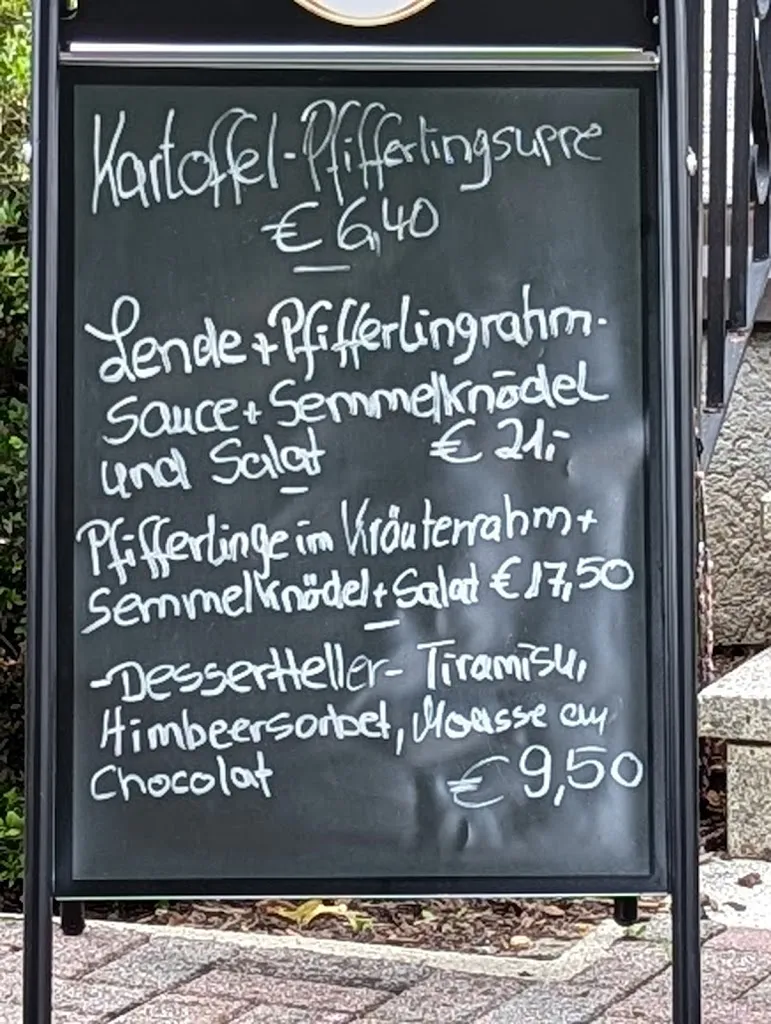 Kartoffel-Pfifferlingsuppe
€ 6,40
Lende + Pfifferlingrahm-
sauce + Semmelknödel
und Salat € 21,-
Pfifferlinge im Kräuterrahm +
Semmelknödel + Salat € 17,50
-Dessertteller- Tiramisu,
Himbeersorbet, Mousse au
Chocolat € 9,50